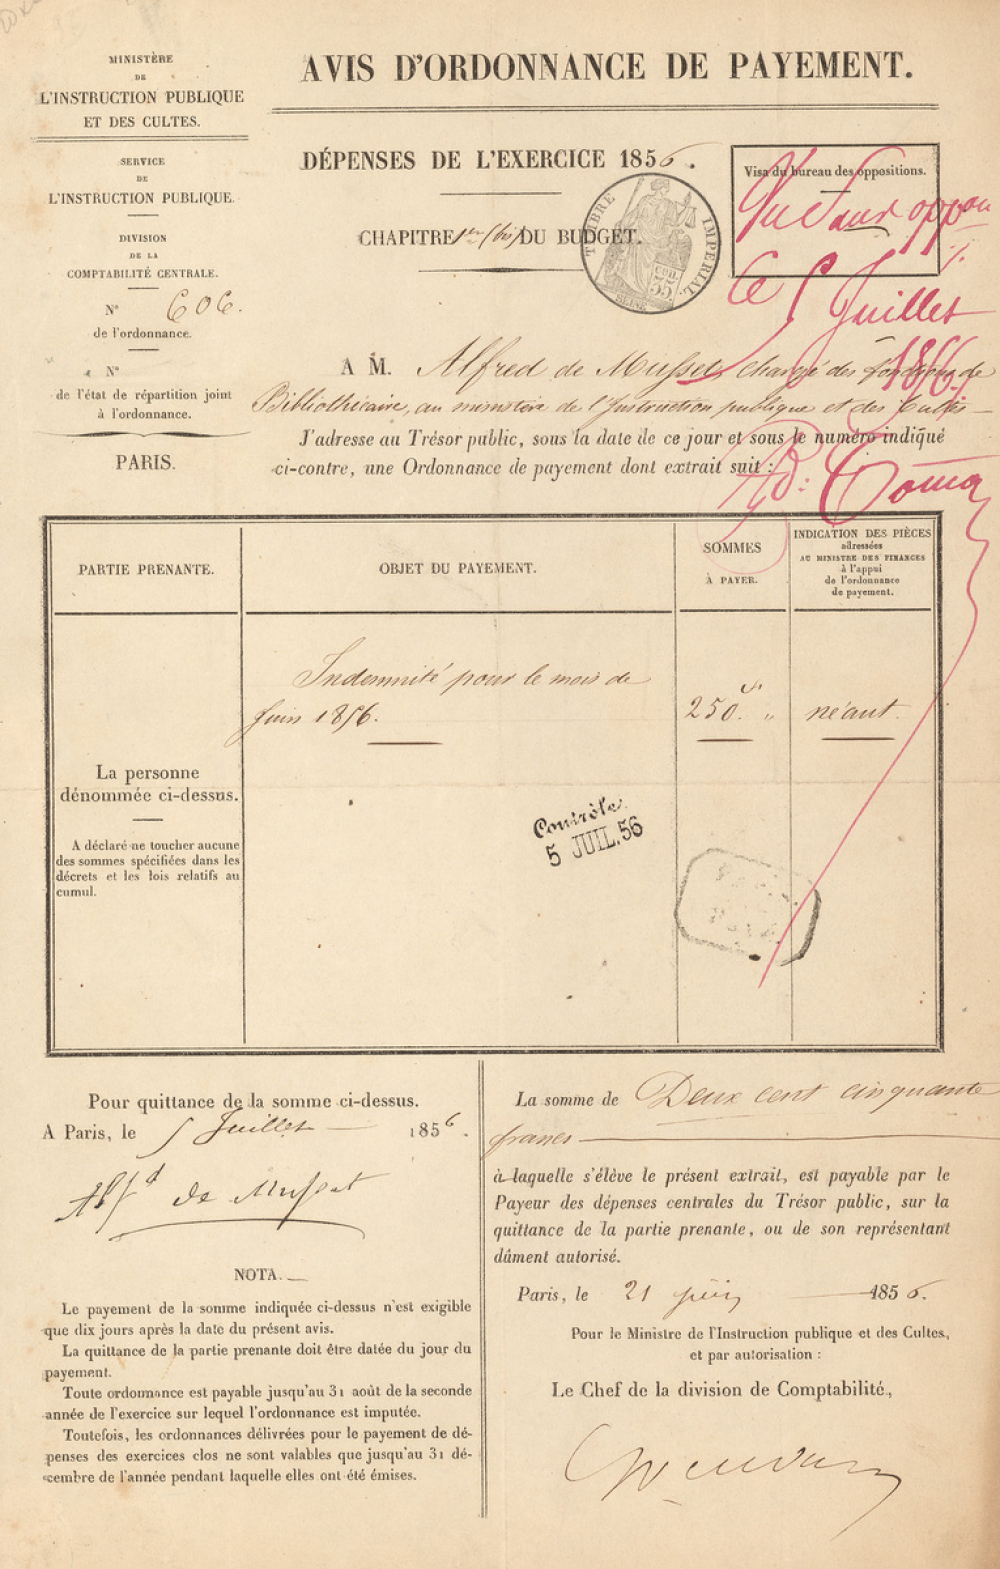 MINISTÈRE
DE
L'INSTRUCTION PUBLIQUE
ET DES CULTES.
SERVICE
DE
L'INSTRUCTION PUBLIQUE.
DIVISION
DE LA
COMPTABILITÉ CENTRALE.
N° 606.
de l'ordonnance.
N°
de l'état de répartition joint
à l'ordonnance.
PARIS.
AVIS D'ORDONNANCE DE PAYEMENT.
DÉPENSES DE L'EXERCICE 1856.
CHAPITRE 1er (bis) DU BUDGET.
TIMBRE IMPERIAL
35
SEINE
Visa du bureau des oppositions.
Vu sans oppon
Ce 5 Juillet
1856
A M. Alfred de Musset, chargé des fonctions de
Bibliothécaire, au ministère de l'Instruction publique et des Cultes
J'adresse au Trésor public, sous la date de ce jour et sous le numéro indiqué
ci-contre, une Ordonnance de payement dont extrait suit :
PARTIE PRENANTE.
OBJET DU PAYEMENT.
SOMMES
À PAYER.
INDICATION DES PIÈCES
adressées
AU MINISTRE DES FINANCES
à l'appui
de l'ordonnance
de payement.
Indemnité pour le mois de
Juin 1856.
250. "
néant.
La personne
dénommée ci-dessus.
A déclaré ne toucher aucune
des sommes spécifiées dans les
décrets et les lois relatifs au
cumul.
Contrôle
5 JUIL. 56
Pour quittance de la somme ci-dessus.
A Paris, le 5 Juillet 1856.
Alfd de Musset
NOTA.
Le payement de la somme indiquée ci-dessus n'est exigible
que dix jours après la date du présent avis.
La quittance de la partie prenante doit être datée du jour du
payement.
Toute ordonnance est payable jusqu'au 31 août de la seconde
année de l'exercice sur lequel l'ordonnance est imputée.
Toutefois, les ordonnances délivrées pour le payement de dé-
penses des exercices clos ne sont valables que jusqu'au 31 dé-
cembre de l'année pendant laquelle elles ont été émises.
La somme de Deux cent cinquante
francs
à laquelle s'élève le présent extrait, est payable par le
Payeur des dépenses centrales du Trésor public, sur la
quittance de la partie prenante, ou de son représentant
dûment autorisé.
Paris, le 21 juin 1856.
Pour le Ministre de l'Instruction publique et des Cultes,
et par autorisation :
Le Chef de la division de Comptabilité,